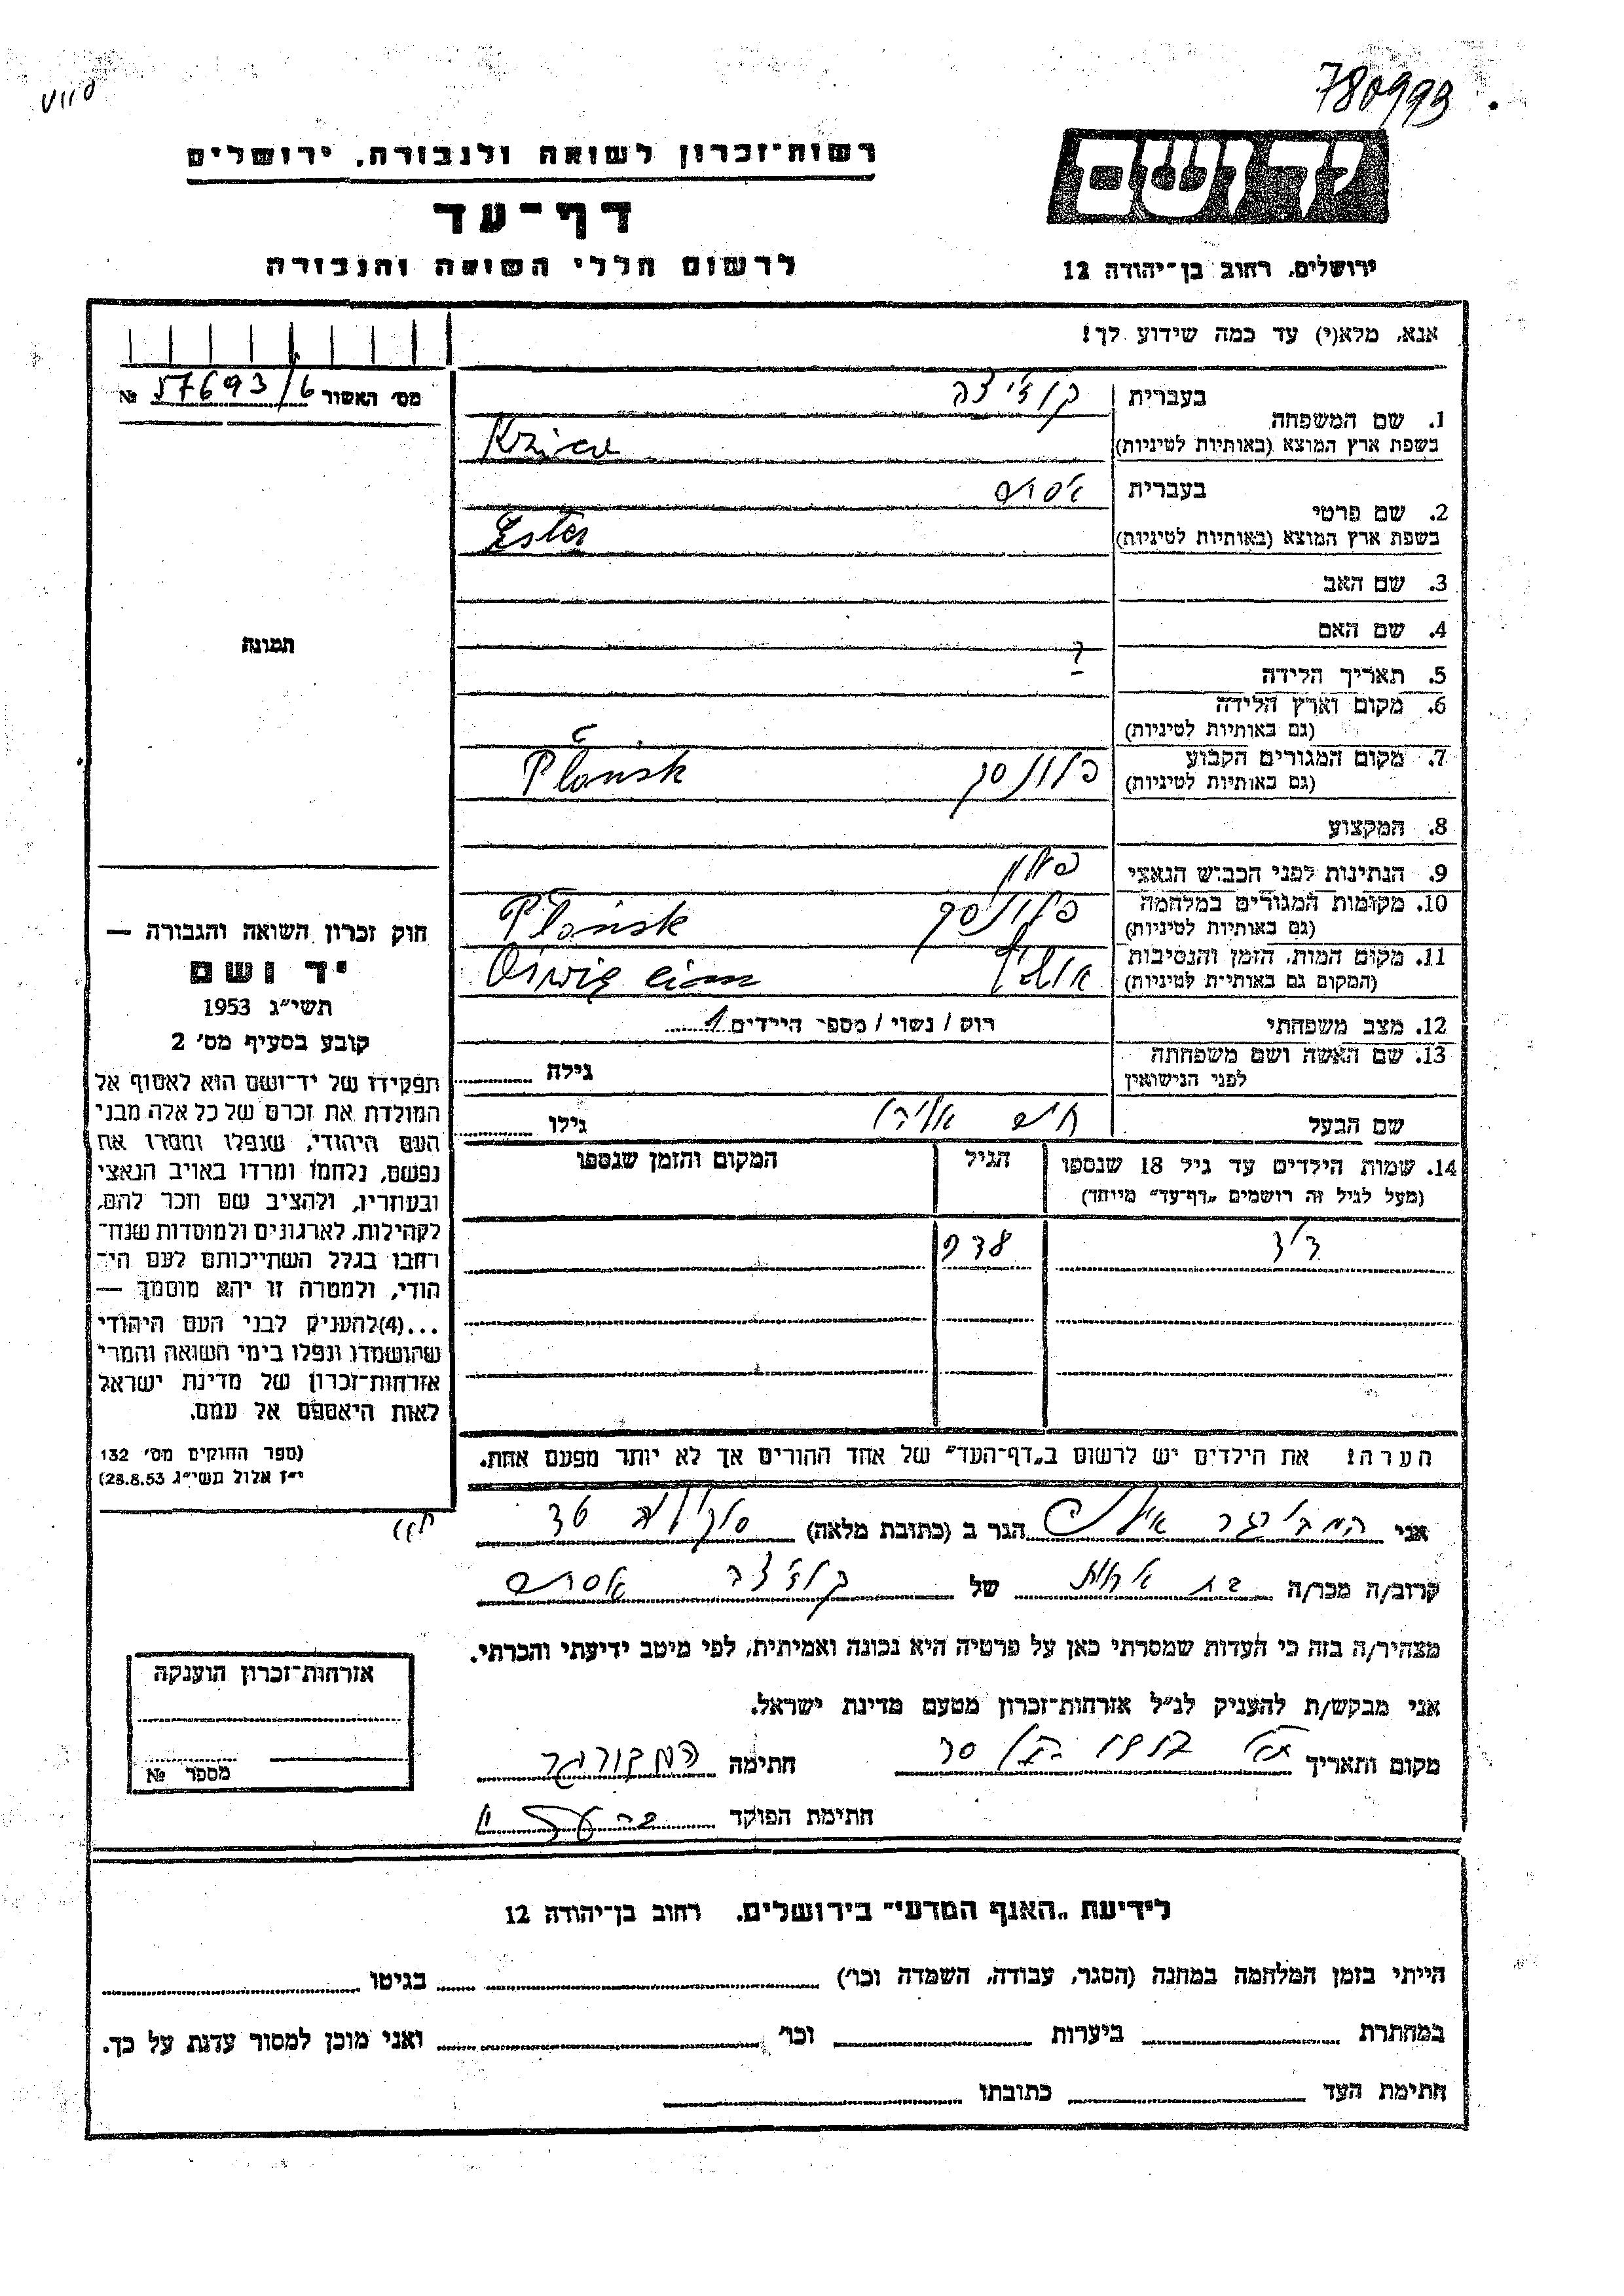 780993
רשות־זכרון לשואה ולגבורה, ירושלים
יד ושם
דף־עד
לרשום חללי השואה והגבורה
ירושלים, רחוב בן־יהודה 12
אנא, מלא(י) עד כמה שידוע לך!
מס׳ האשור 57693/6 №
1. שם המשפחה
בעברית
בשפת ארץ המוצא (באותיות לטיניות)
2. שם פרטי
בעברית אסתר
בשפת ארץ המוצא (באותיות לטיניות) Ester
3. שם האב
4. שם האם
5. תאריך הלידה
6. מקום וארץ הלידה
(גם באותיות לטיניות)
7. מקום המגורים הקבוע פלונסק Plońsk
(גם באותיות לטיניות)
8. המקצוע
9. הנתינות לפני הכבוש הנאצי פולין
10. מקומות המגורים במלחמה פלונסק Plońsk
(גם באותיות לטיניות)
11. מקום המות, הזמן והנסיבות
(המקום גם באותיות לטיניות)
12. מצב משפחתי רוק / נשוי / מספר הילדים 1
13. שם האשה ושם משפחתה
לפני הנישואין
גילה
שם הבעל חיים
גילו
14. שמות הילדים עד גיל 18 שנספו
(מעל לגיל זה רושמים „דף־עד״ מיוחד)
הגיל
המקום והזמן שנספו
דוד 938
הערה: את הילדים יש לרשום ב„דף־העד״ של אחד ההורים אך לא יותר מפעם אחת.
תמונה
חוק זכרון השואה והגבורה —
יד ושם
תשי״ג 1953
קובע בסעיף מס׳ 2
תפקידו של יד־ושם הוא לאסוף אל
המולדת את זכרם של כל אלה מבני
העם היהודי, שנפלו ומסרו את
נפשם, נלחמו ומרדו באויב הנאצי
ובעוזריו, ולהציב שם וזכר להם,
לקהילות, לארגונים ולמוסדות שנח־
רחבו בגלל השתייכותם לעם הי־
הודי, ולמטרה זו יהא מוסמך —
...(4)להעניק לבני העם היהודי
שהושמדו ונפלו בימי השואה והמרי
אזרחות־זכרון של מדינת ישראל
לאות היאספם אל עמם.
(ספר החוקים מס׳ 132
י״ז אלול תשי״ג 28.8.53)
אני הגר ב (כתובת מלאה)
קרוב/ה מכר/ה בת אחות של אסתר
מצהיר/ה בזה כי העדות שמסרתי כאן על פרטיה היא נכונה ואמיתית, לפי מיטב ידיעתי והכרתי.
אני מבקש/ת להעניק לנ״ל אזרחות־זכרון מטעם מדינת ישראל.
מקום ותאריך
חתימה
חתימת הפוקד
אזרחות־זכרון הוענקה
מספר №
לידיעת „האגף המדעי״ בירושלים, רחוב בן־יהודה 12
הייתי בזמן המלחמה במחנה (הסגר, עבודה, השמדה וכו׳) בגיטו
במחתרת ביערות וכו׳ ואני מוכן למסור עדות על כך.
חתימת העד כתובתו